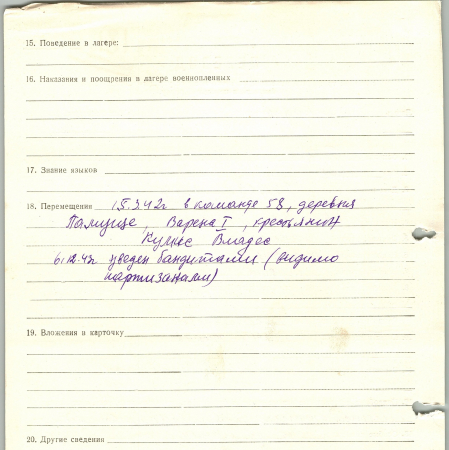 15. Поведение в лагере:
16. Наказания и поощрения в лагере военнопленных
17. Знание языков
18. Перемещения 15.5.42г. в команде 58, деревня
Памуще, Варена I, крестьянин
Владес
6.12.42г. уведен бандитами (видимо
партизанами)
19. Вложения в карточку
20. Другие сведения